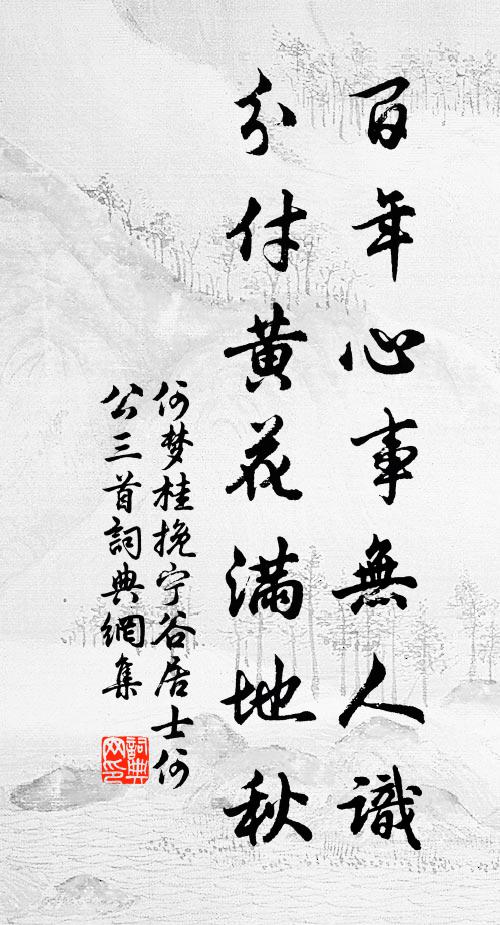 百年心事無人識
分付黄花滿地秋
何梦桂挽宁谷居士何
公三首詞典網集
詞典
网印